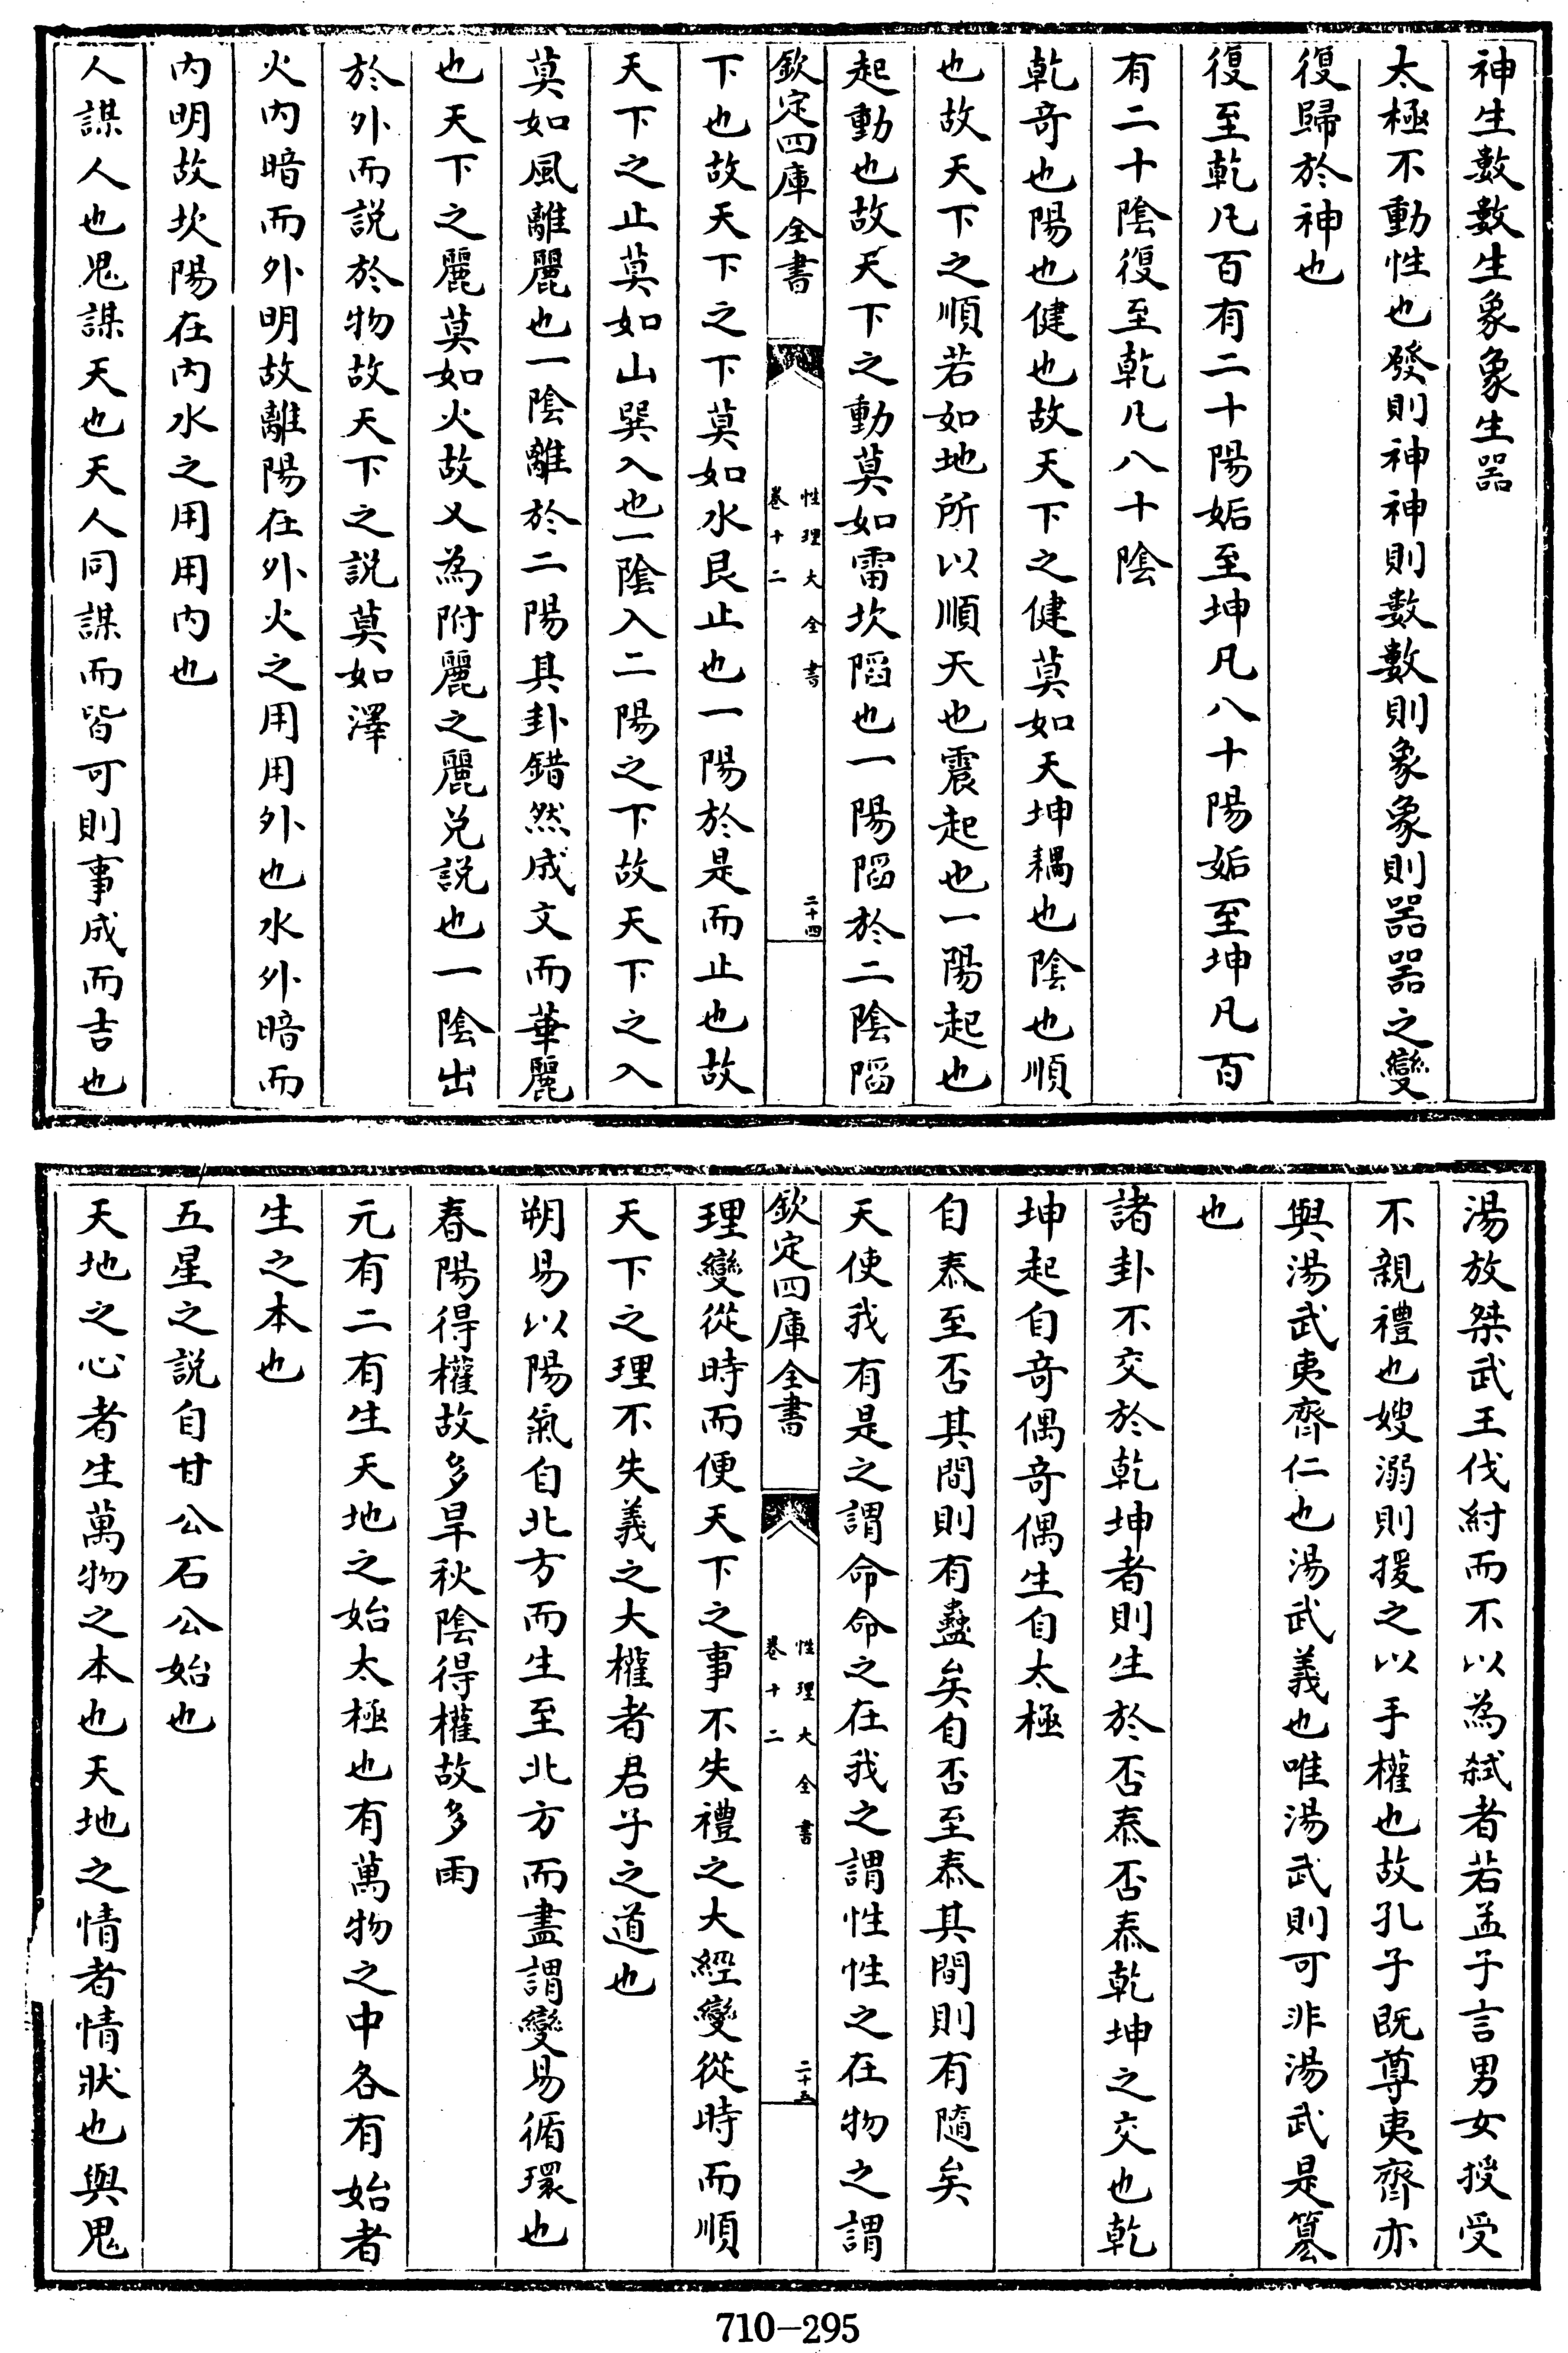 神生數數生象象生器
太極不動性也發則神神則數數則象象則器器之變
復歸於神也
復至乾凡百有二十陽姤至坤凡八十陽姤至坤凡百
有二十陰復至乾凡八十陰
乾奇也陽也健也故天下之健莫如天坤耦也陰也順
也故天下之順若如地所以順天也震起也一陽起也
起動也故天下之動莫如雷坎陷也一陽陷於二陰陷
欽定四庫全書
性理大全書
卷十二
二十四
下也故天下之下莫如水艮止也一陽於是而止也故
天下之止莫如山巽入也一陰入二陽之下故天下之入
莫如風離麗也一陰離於二陽其卦錯然成文而華麗
也天下之麗莫如火故又為附麗之麗兌説也一陰出
於外而説於物故天下之説莫如澤
火內暗而外明故離陽在外火之用用外也水外暗而
內明故坎陽在內水之用用內也
人謀人也鬼謀天也天人同謀而皆可則事成而吉也
湯放桀武王伐紂而不以為弑者若孟子言男女授受
不親禮也嫂溺則援之以手權也故孔子既尊夷齊亦
與湯武夷齊仁也湯武義也唯湯武則可非湯武是簒
也
諸卦不交於乾坤者則生於否泰否泰乾坤之交也乾
坤起自奇偶奇偶生自太極
自泰至否其間則有蠱矣自否至泰其間則有隨矣
天使我有是之謂命命之在我之謂性性之在物之謂
欽定四庫全書
性理大全書
卷十二
二十五
理變從時而便天下之事不失禮之大經變從時而順
天下之理不失義之大權者君子之道也
朔易以陽氣自北方而生至北方而盡謂變易循環也
春陽得權故多旱秋陰得權故多雨
元有二有生天地之始太極也有萬物之中各有始者
生之本也
五星之説自甘公石公始也
天地之心者生萬物之本也天地之情者情狀也與鬼
710-295